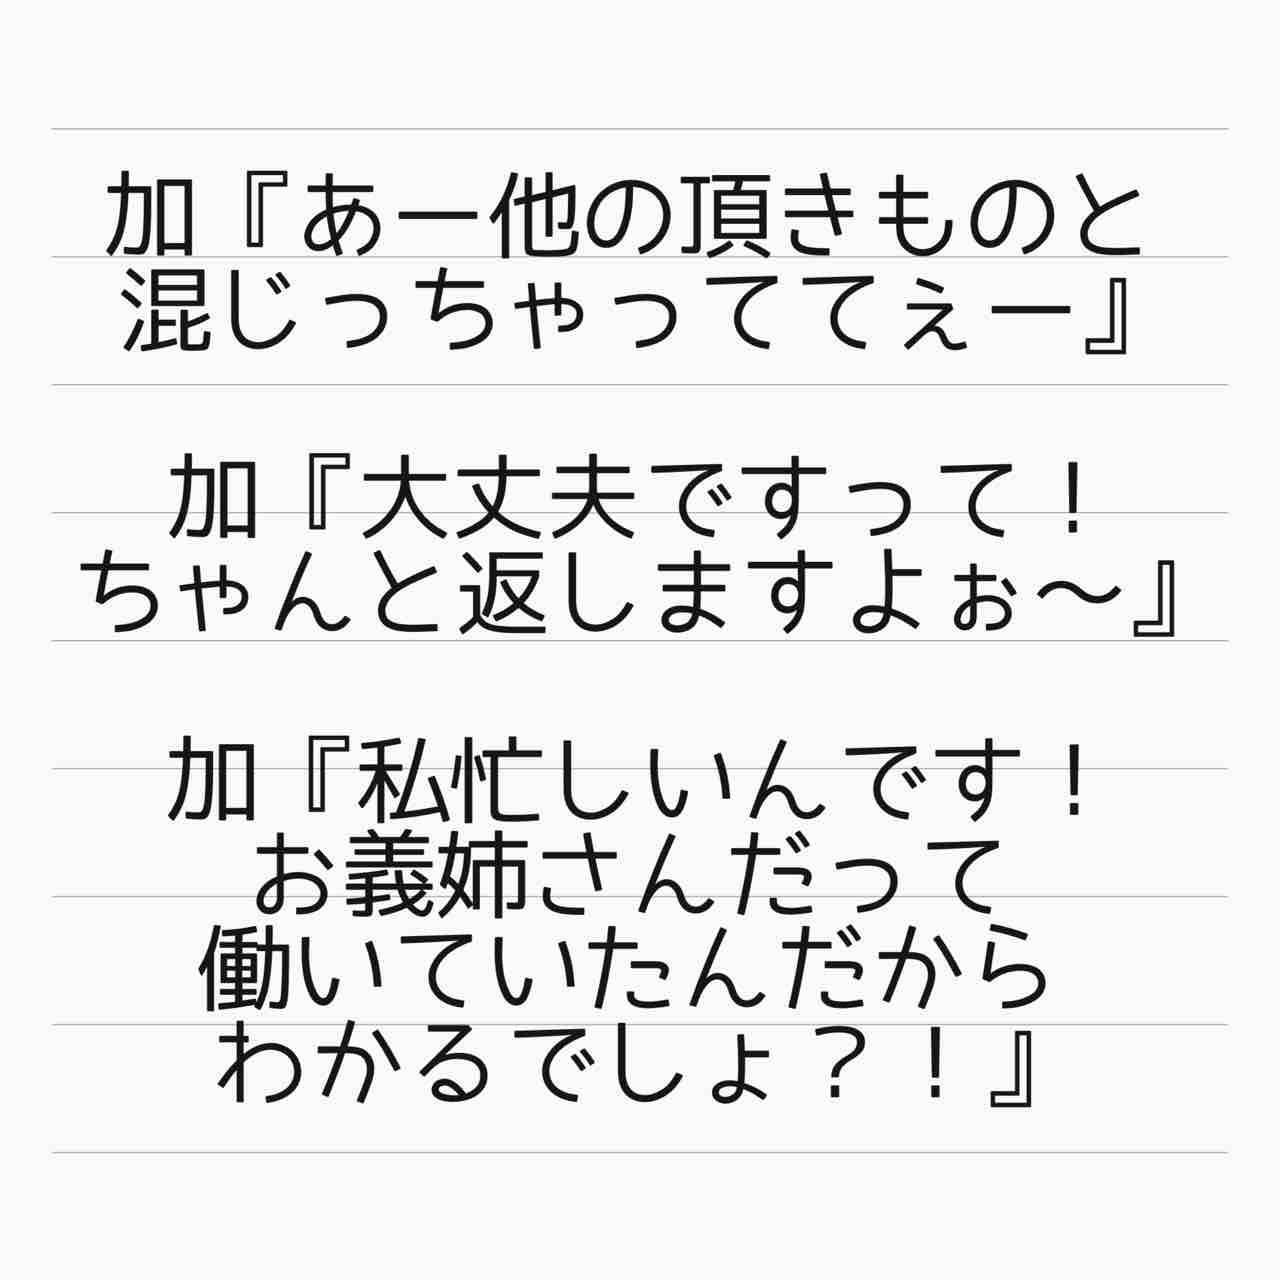 加『あー他の頂きものと
混じっちゃっててぇー』
加『大丈夫ですって！
ちゃんと返しますよぉ〜』
加『私忙しいんです！
お義姉さんだって
働いていたんだから
わかるでしょ？！』